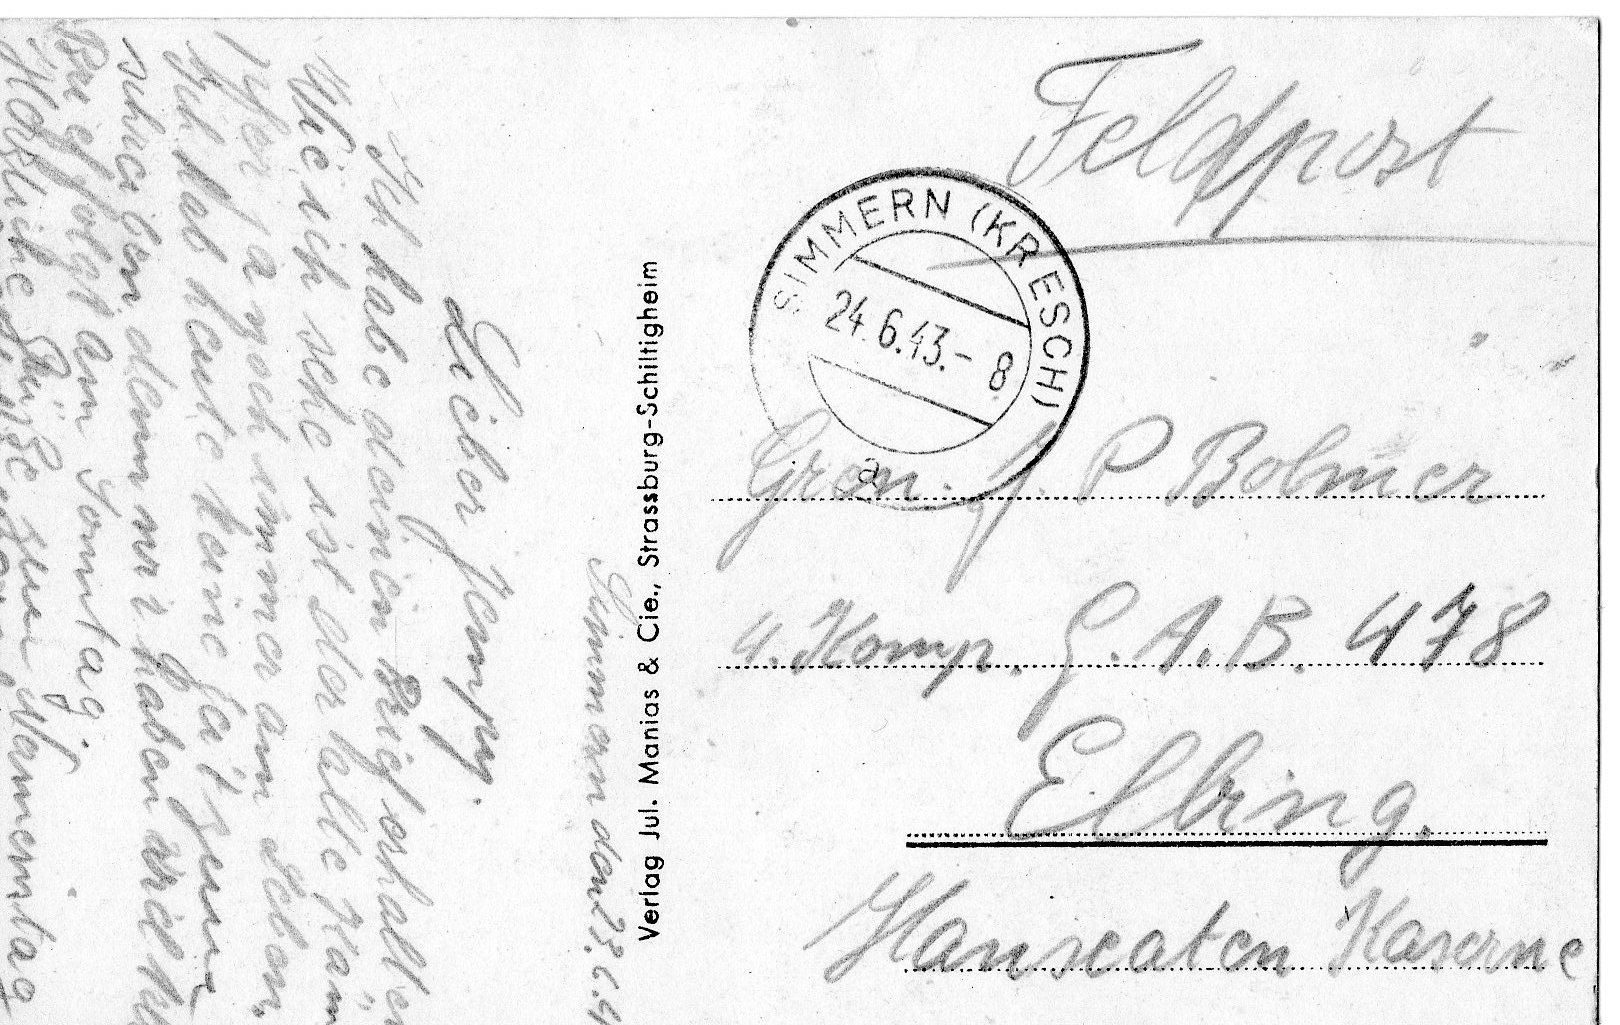 Feldpost
SIMMERN (KR ESCH)
24.6.43.- 8
a
Gren. J. P Bolmer
4. Komp. G. A. B. 478
Elbing.
Hanseaten Kaserne
Verlag Jul. Manias & Cie., Strassburg-Schiltigheim
Simmern den 23.6.4
Lieber Jempy.
Ich habe deinen Brief erhalten
Wie ich sehe ist der alle Käm
ja noch immer am Leben.
Ich hab heute keine
schreiben denn wir haben
Brief folgt am Sonntag
Herzliche Grüße